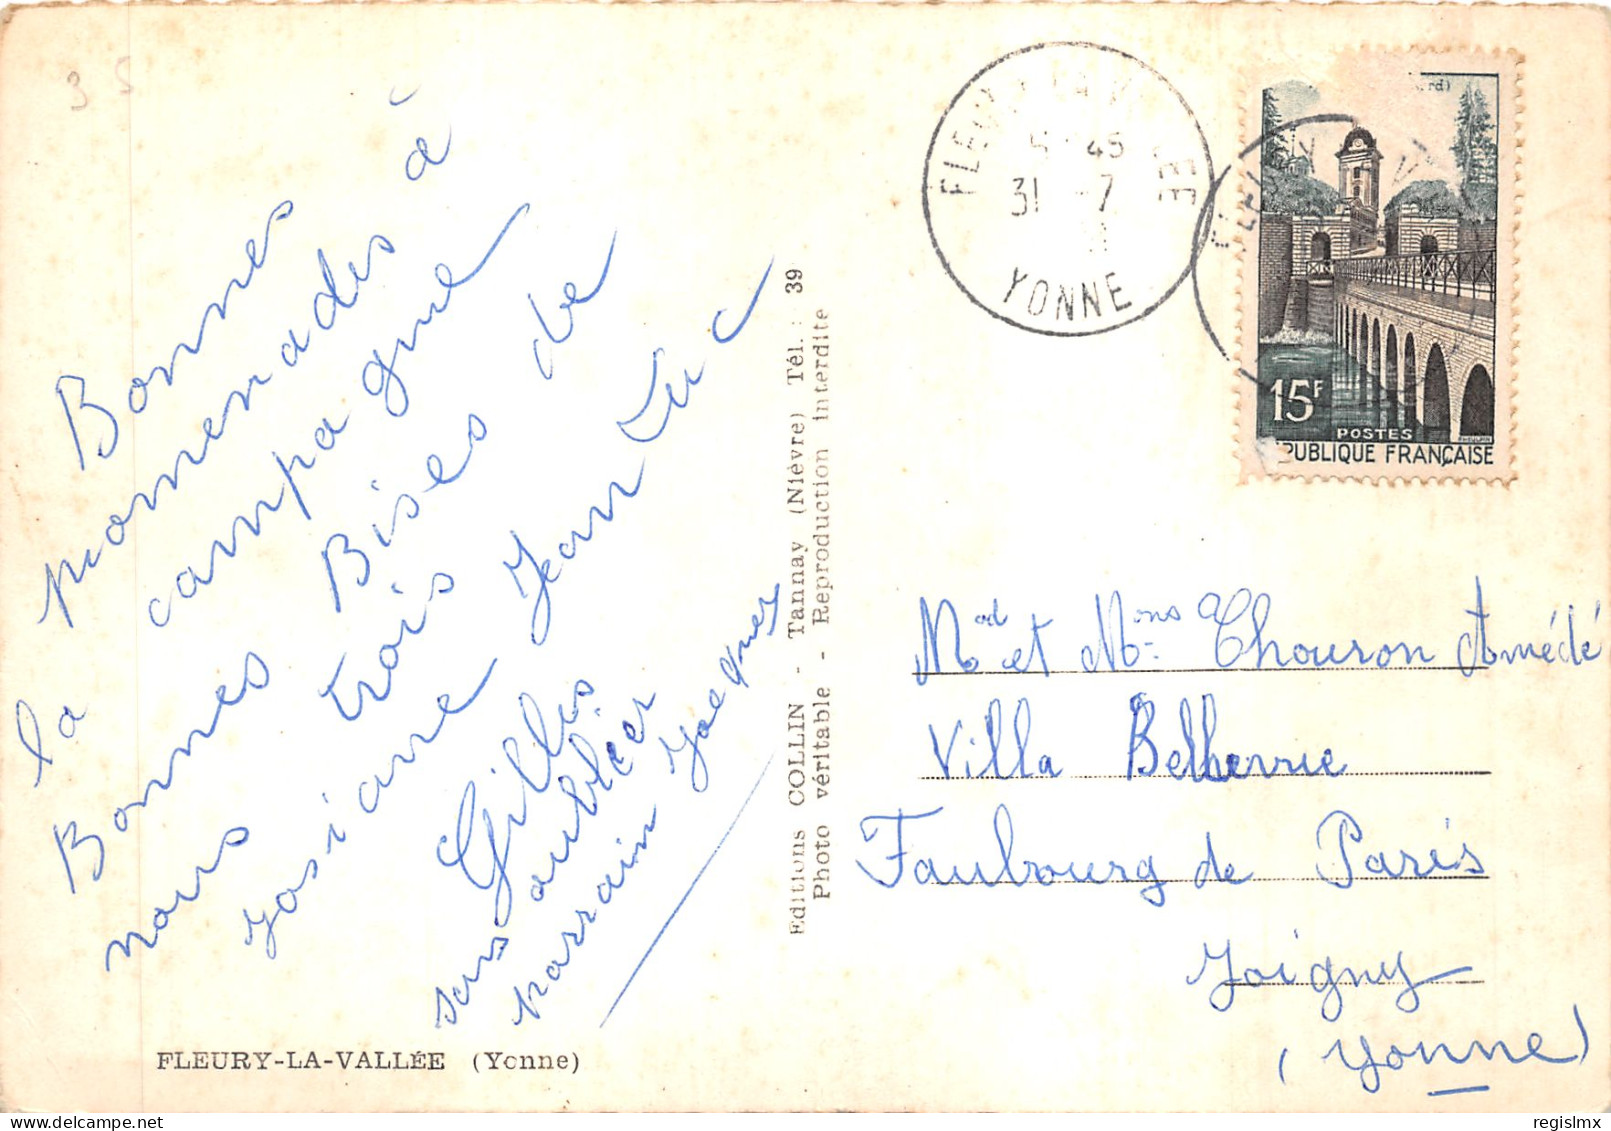 35
Bonnes
promenades à
la campagne
Bonnes Bises de
nous trois
Josiane Jean Luc
Gilles
sans oublier
parrain Jacques
FLEURY-LA-VALLÉE (Yonne)
Editions COLLIN - Tannay (Nièvre) Tél. : 39
Photo véritable - Reproduction interdite
FLEURY LA VALLEE
5 45
31 -7
YONNE
FLEURY V
rd)
15F
POSTES
PUBLIQUE FRANÇAISE
Mad et Mons Thouron Amédé
Villa Bellevue
Faubourg de Paris
Joigny
(Yonne)
regislmx